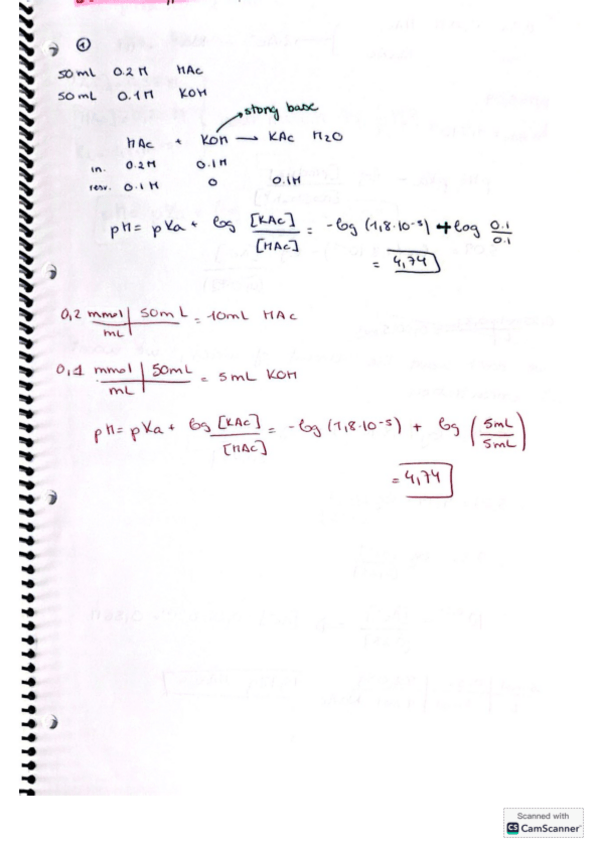 ①
50 mL 0.2 M HAc
50 mL 0.1 M KOH
strong base
HAc + KOH → KAc H2O
in. 0.2 M 0.1 M
reac. 0.1 M 0 0.1 M
pH = pKa + log [KAc]/[HAc] = -log (1,8·10-5) + log 0.1/0.1
= 4,74
0,2 mmol/mL | 50 mL = 10 mL HAc
0,1 mmol/mL | 50 mL = 5 mL KOH
pH = pKa + log [KAc]/[HAc] = -log (1,8·10-5) + log (5mL/5mL)
= 4,74
Scanned with
CS CamScanner